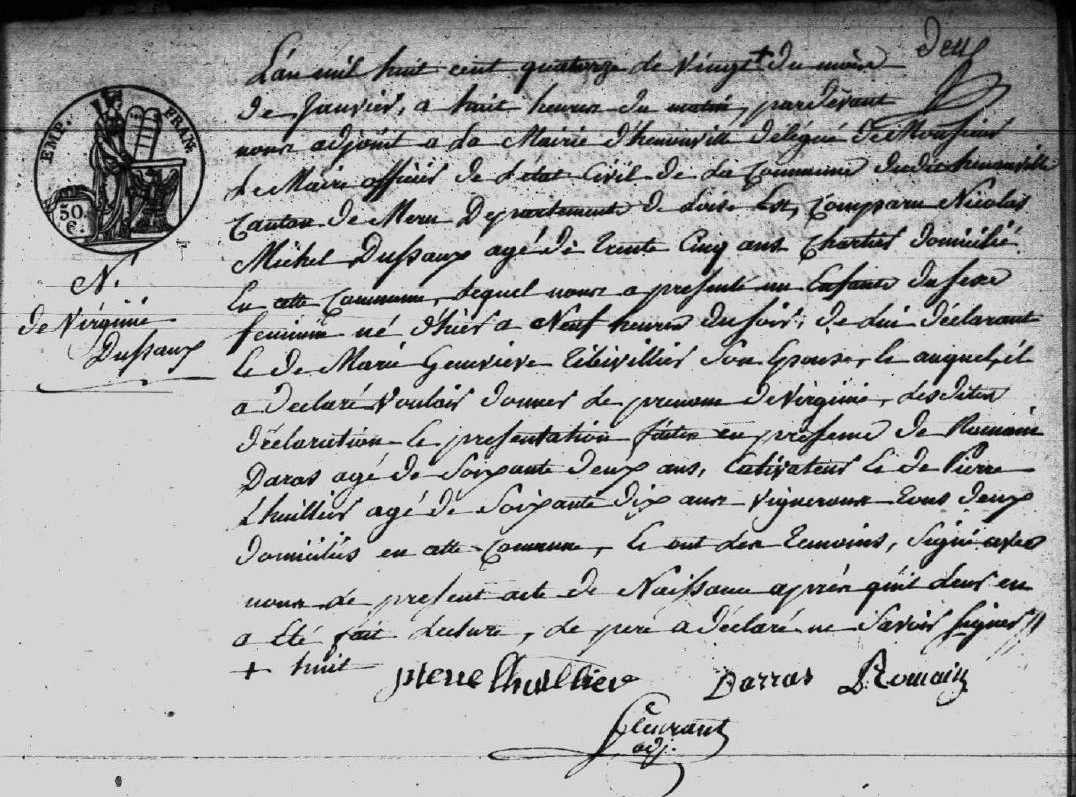 deux
L'an mil huit cent quatorze le vingt + du mois
de Janvier, a huit heures du matin, pardevant
nous adjoint a la Mairie d'henonville délégué de Monsieur
le Maire officier de L'état Civil de La Commune dudit henonville
Canton de Meru Departement de Loise Est, Comparu Nicolas
Michel Dussaux agé de trente Cinq ans Chartier domicilié
En cette Commune, lequel nous a presenté un Enfante du sexe
feminin né d'hier a Neuf heures du soir, de lui déclarant
Et de Marie Genevieve Tibivillier Son Epouse, Et auquel il
a déclaré Vouloir donner le prenom de Virginie, Lesdites
déclaration Et presentation faites en presence de Romain
Daras agé de Soixante deux ans, Cultivateur Et de Pierre
Lhuillier agé de Soixante dix ans Vigneron Tous deux
domiciliés en cette Commune, Et ont les Temoins, Signé avec
nous le present acte de Naissance après qu'il leur en
a Eté fait Lecture, le pere a déclaré ne Savoir signer //
+ huit
pierre lhuillier Darras Romain
adj.
EMP. FRAN.
50. c.
N.
de Virginie
Dussaux